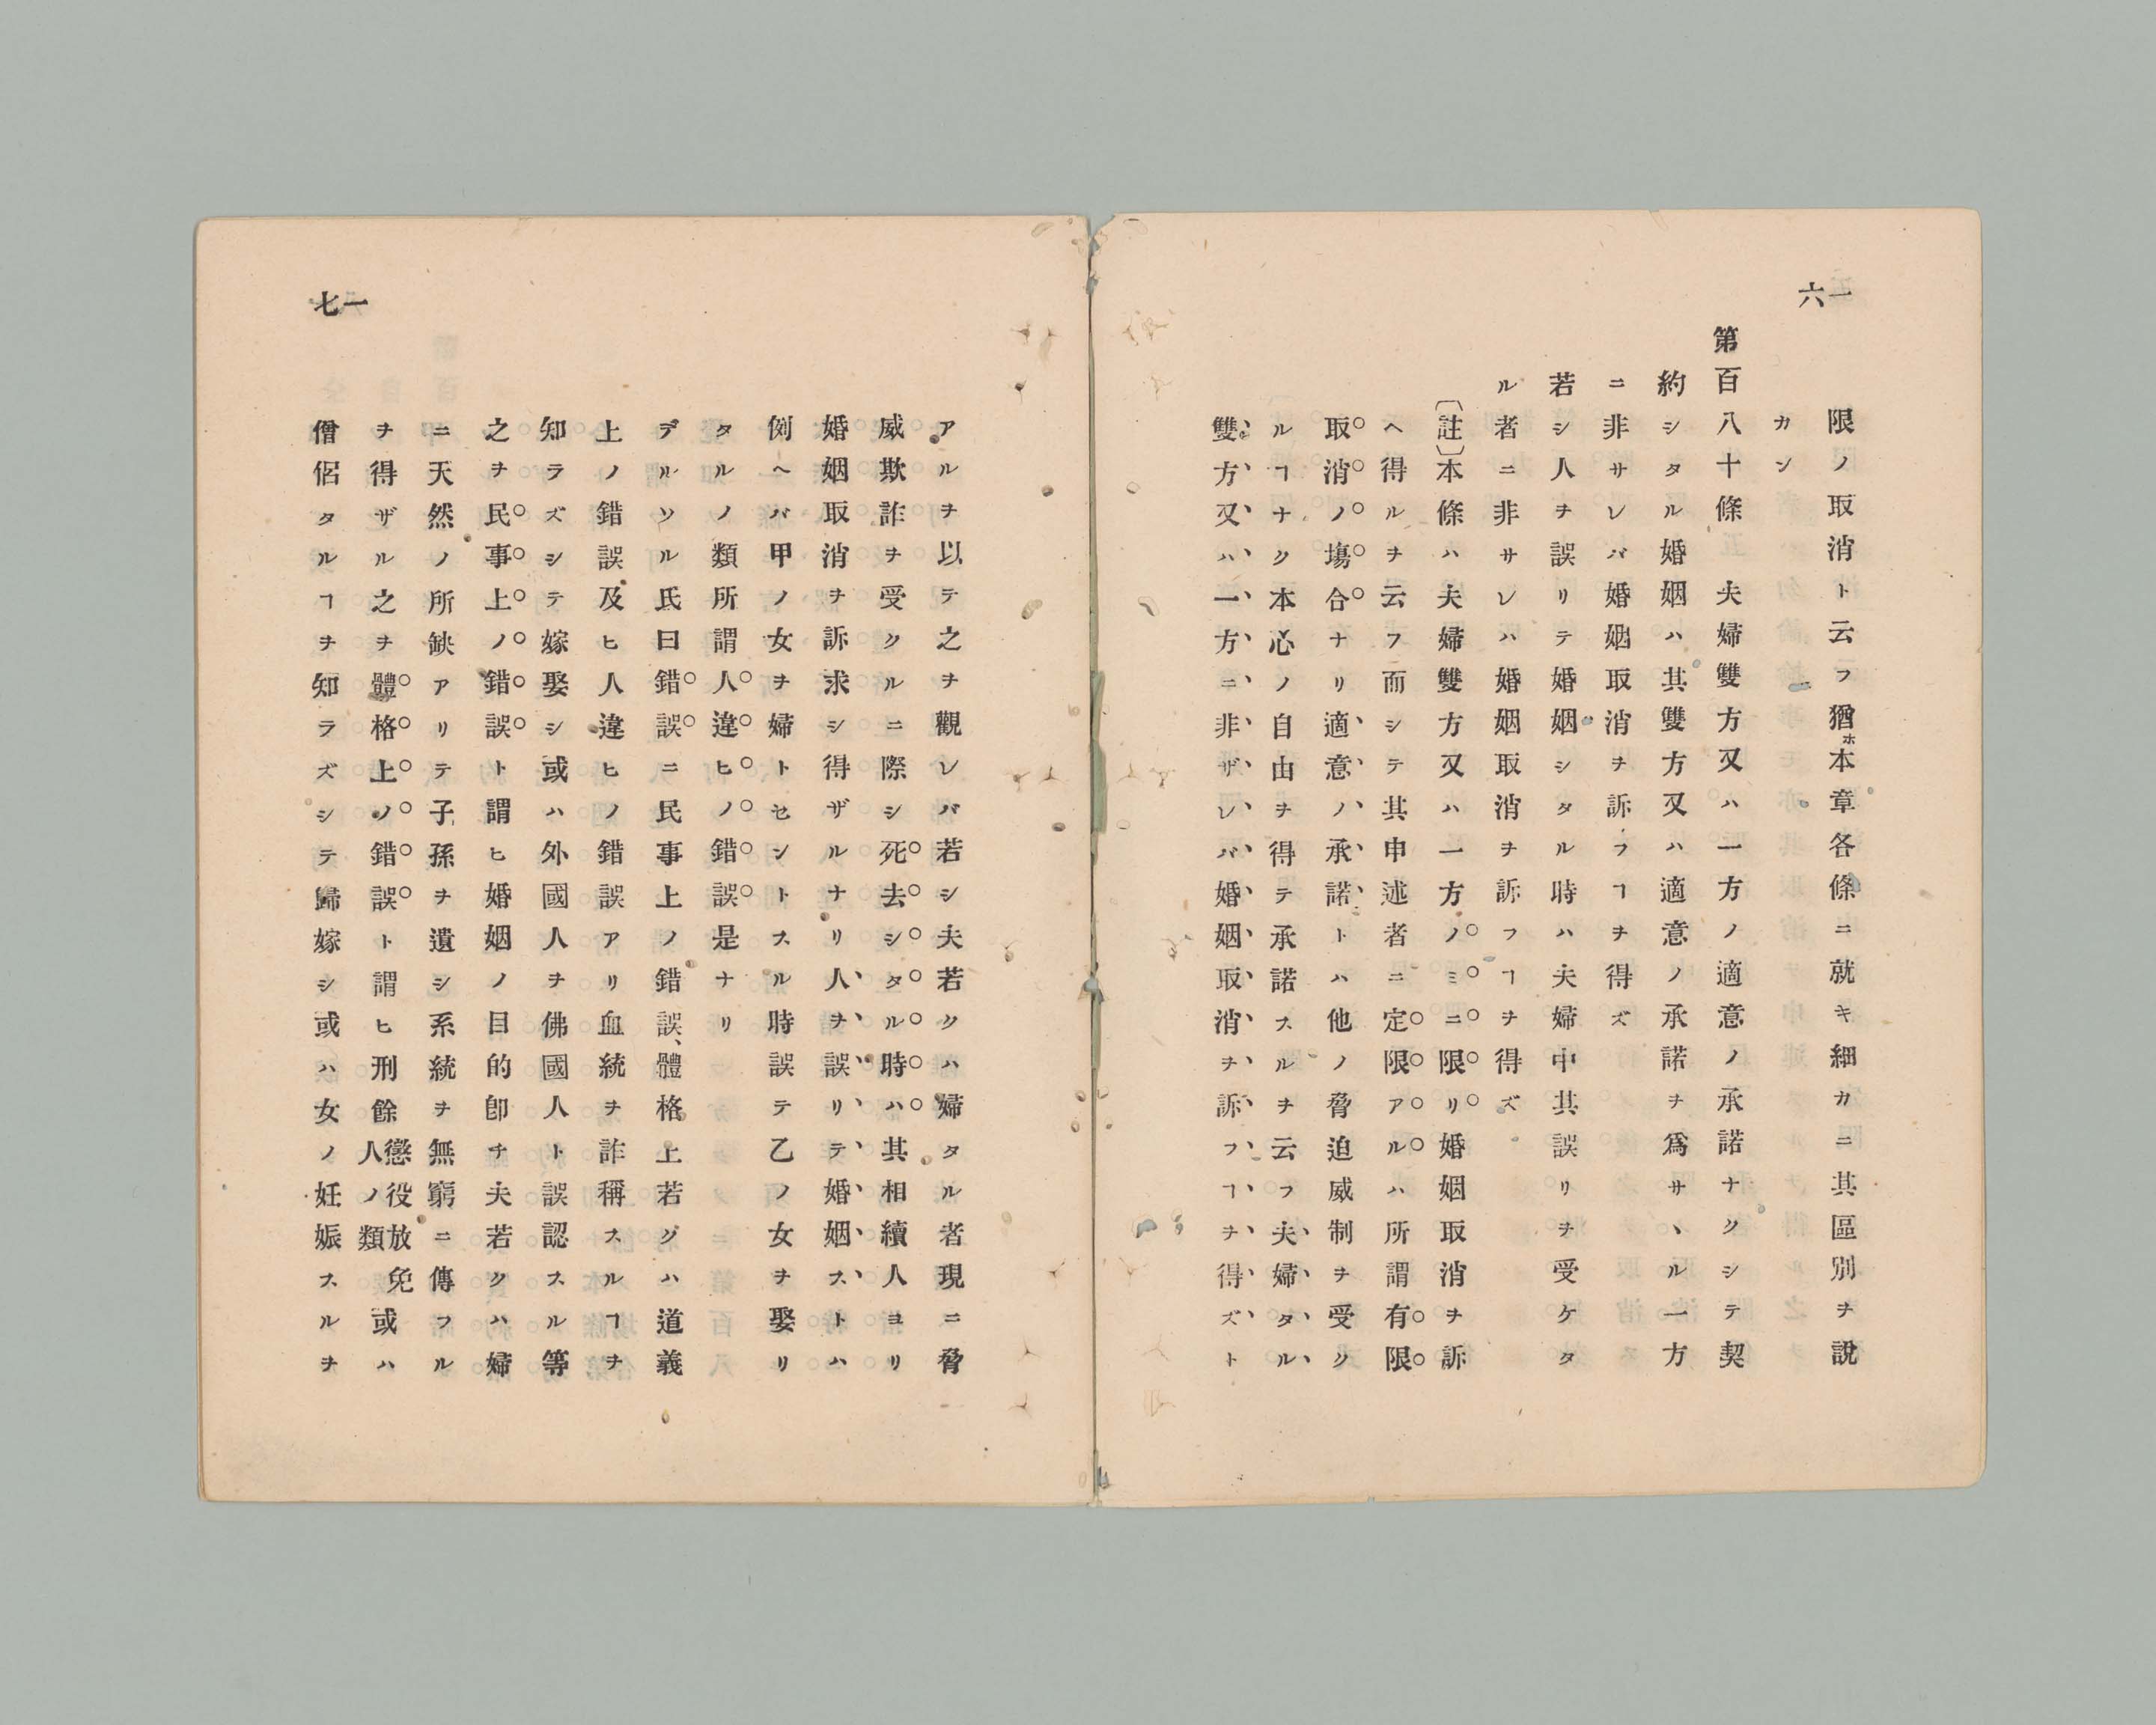 一六
限ノ取消ト云フ猶ホ本章各條ニ就キ細カニ其區別ヲ說
カン
第百八十條　夫婦雙方又ハ一方ノ適意ノ承諾ナクシテ契
約シタル婚姻ハ其雙方又ハ適意ノ承諾ヲ爲サヽル一方
ニ非サレバ婚姻取消ヲ訴フヿヲ得ズ
若シ人ヲ誤リテ婚姻シタル時ハ夫婦中其誤リヲ受ケタ
ル者ニ非サレハ婚姻取消ヲ訴フヿヲ得ズ
〔註〕本條ハ夫婦雙方又ハ一方ノミニ限リ婚姻取消ヲ訴
ヘ得ルヲ云フ而シテ其申述者ニ定限アルハ所謂有限
取消ノ塲合ナリ適意ノ承諾トハ他ノ脅迫威制ヲ受ク
ルヿナク本心ノ自由ヲ得テ承諾スルヲ云フ夫婦タル
雙方又ハ一方ニ非ザレバ婚姻取消ヲ訴フヿヲ得ズト
一七
アルヲ以テ之ヲ觀レバ若シ夫若クハ婦タル者現ニ脅
威欺詐ヲ受クルニ際シ死去シタル時ハ其相續人ヨリ
婚姻取消ヲ訴求シ得ザルナリ人ヲ誤リテ婚姻ストハ
例ヘバ甲ノ女ヲ婦トセントスル時誤テ乙ノ女ヲ娶リ
タルノ類所謂人違ヒノ錯誤是ナリ
デルソル氏曰錯誤ニ民事上ノ錯誤、體格上若グハ道義
上ノ錯誤及ヒ人違ヒノ錯誤アリ血統ヲ詐稱スルヿヲ
知ラズシテ嫁娶シ或ハ外國人ヲ佛國人ト誤認スル等
之ヲ民事上ノ錯誤ト謂ヒ婚姻ノ目的卽チ夫若クハ婦
ニ天然ノ所缺アリテ子孫ヲ遺シ系統ヲ無窮ニ傳フル
ヲ得ザル之ヲ體格上ノ錯誤ト謂ヒ刑餘懲役放免人ノ類或ハ
僧侶タルヿヲ知ラズシテ歸嫁シ或ハ女ノ妊娠スルヲ